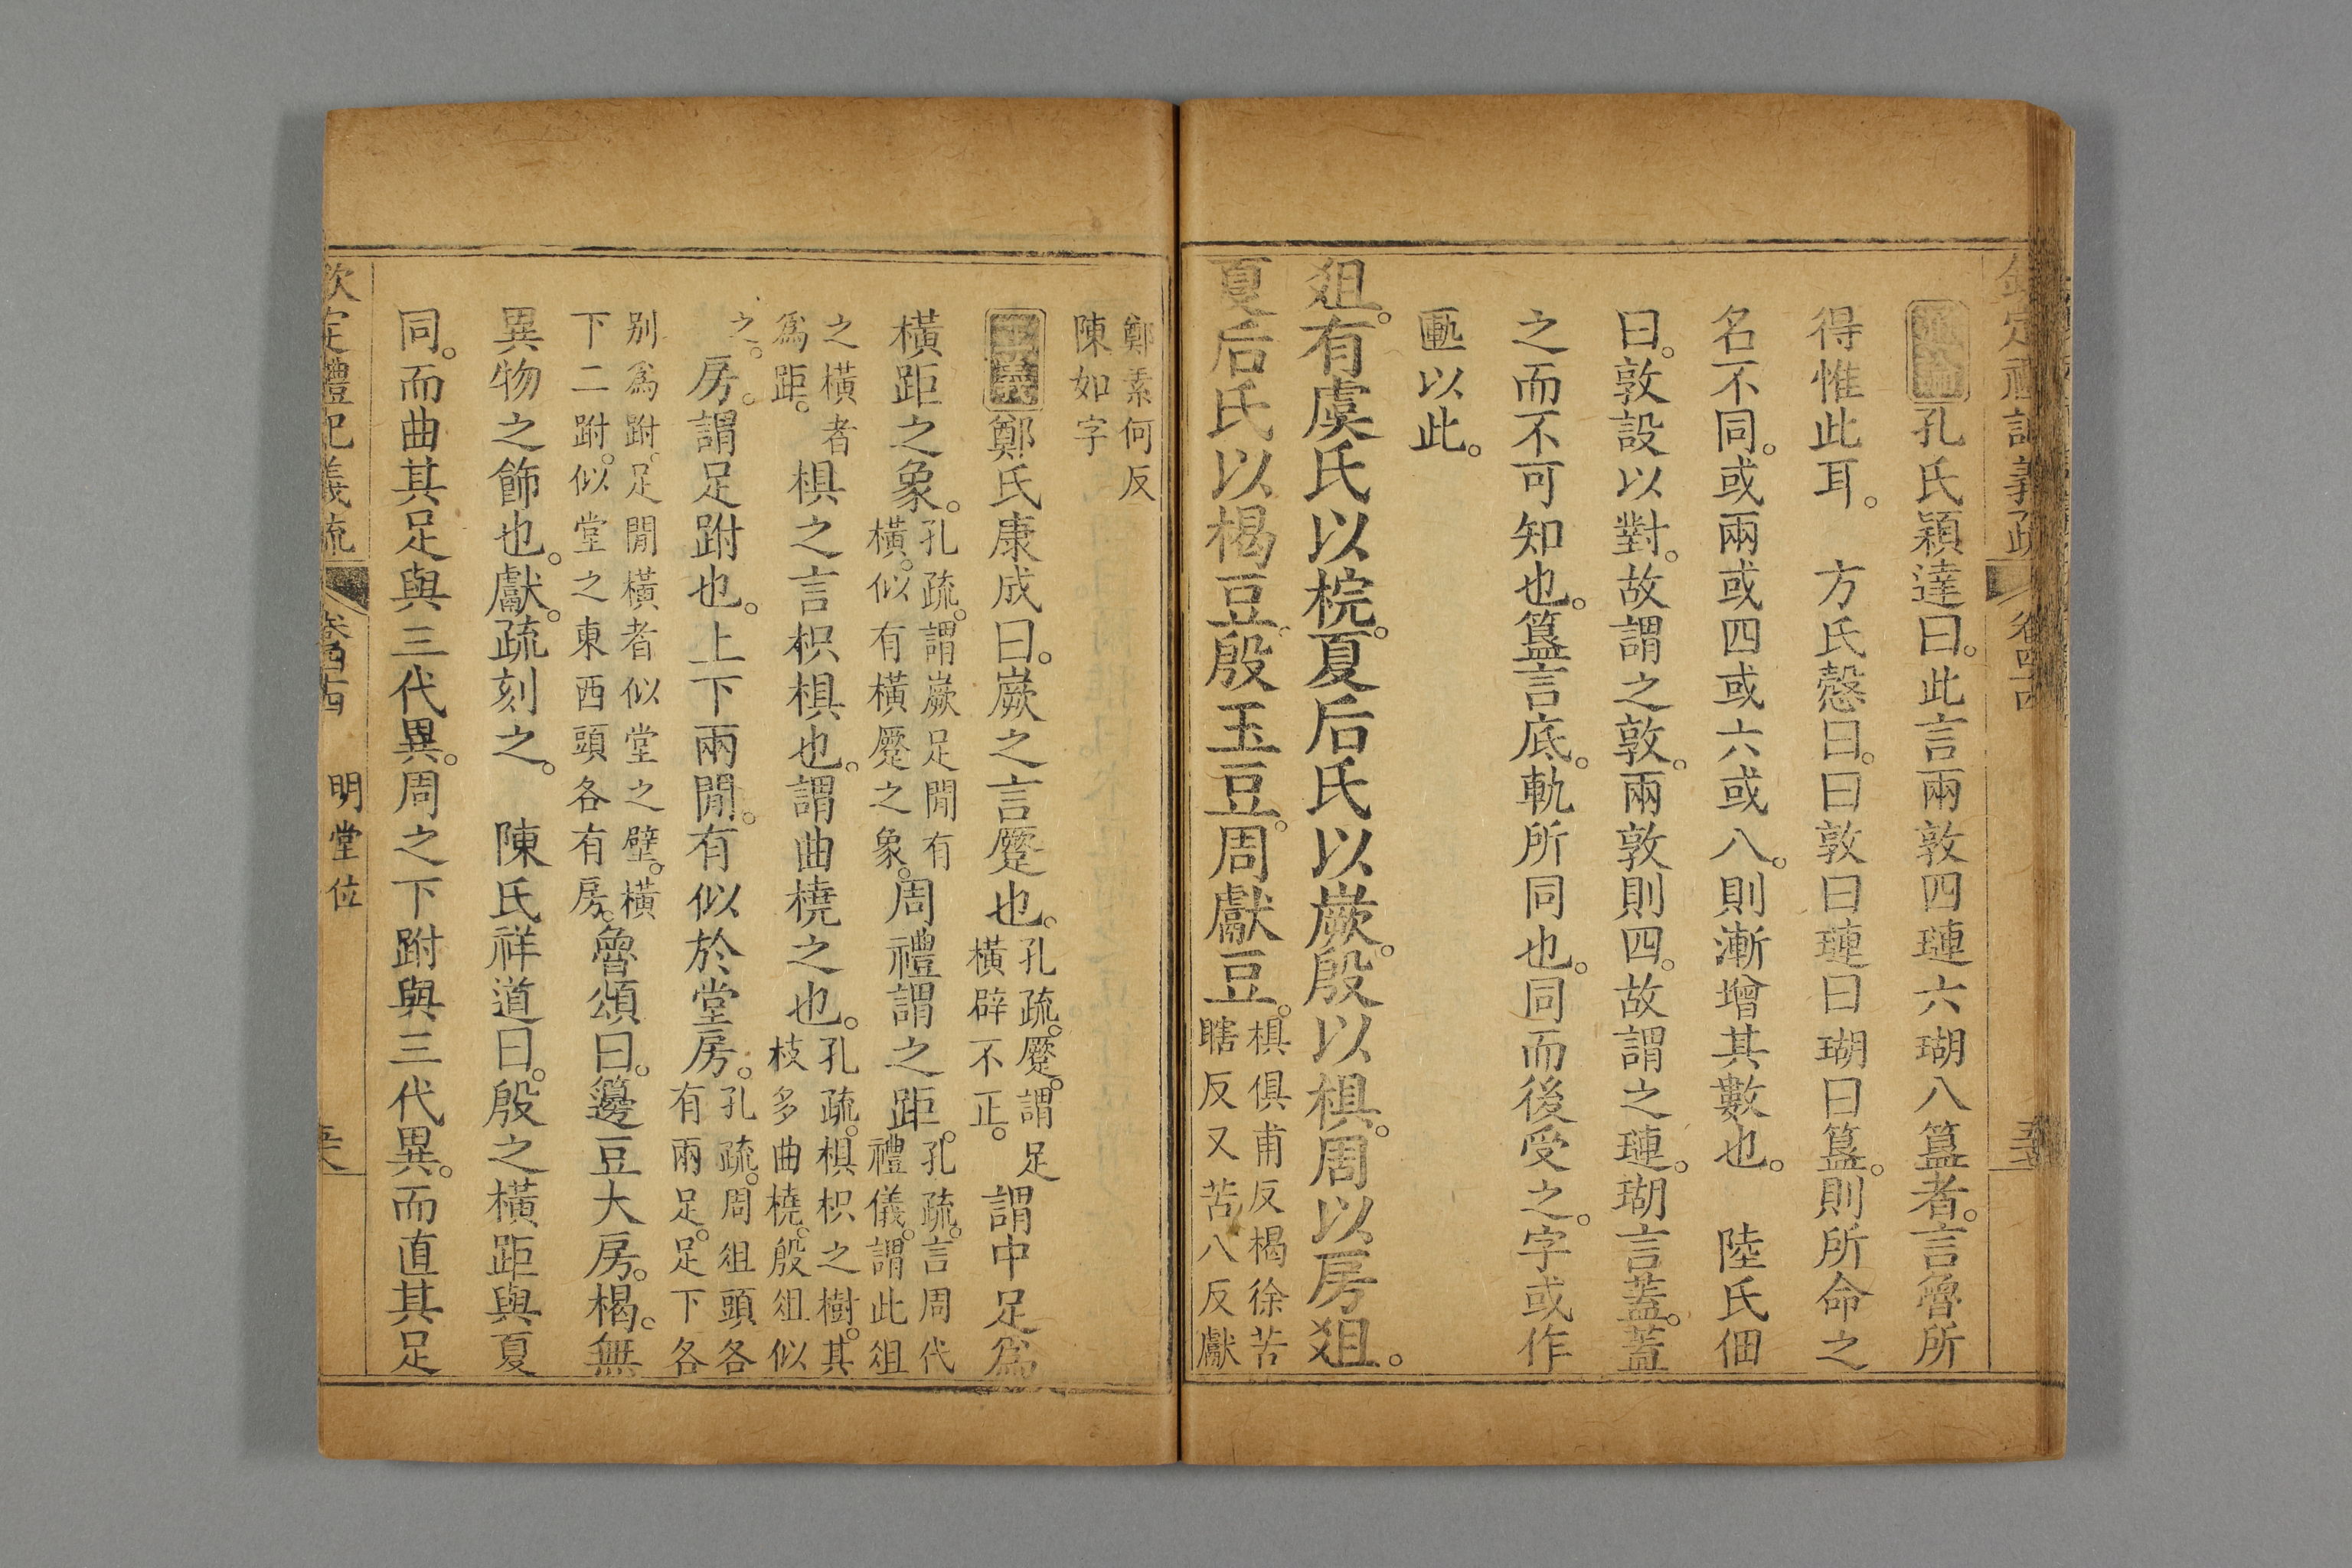 欽定禮記義疏 卷四
通論孔氏穎達曰。此言兩敦四璉六瑚八簋者。言魯所
得惟此耳。 方氏慤曰。曰敦曰璉曰瑚曰簋。則所命之
名不同。或兩或四或六或八。則漸增其數也。 陸氏佃
曰。敦設以對。故謂之敦。兩敦則四。故謂之璉。瑚言蓋。蓋
之而不可知也。簋言底。軌所同也。同而後受之。字或作
匭以此。
俎。有虞氏以梡。夏后氏以嶡。殷以椇。周以房俎。
夏后氏以楬豆。殷玉豆。周獻豆。
椇俱甫反楬徐苦
瞎反又苦八反獻
鄭素何反
陳如字
正義鄭氏康成曰。嶡之言蹷也。
孔疏。蹷。謂足
橫辟不正。
謂中足爲
橫距之象。
孔疏。謂嶡足閒有
橫。似有橫蹷之象。
周禮謂之距。
孔疏。言周代
禮儀。謂此俎
之橫者
爲距。
椇之言枳椇也。謂曲橈之也。
孔疏。椇枳之樹。其
枝多曲橈。殷俎似
之。
房。謂足跗也。上下兩閒。有似於堂房。
孔疏。周俎頭各
有兩足。足下各
别爲跗。足閒橫者似堂之壁。橫
下二跗。似堂之東西頭各有房。
魯頌曰。籩豆大房。楬。無
異物之飾也。獻。疏刻之。 陳氏祥道曰。殷之橫距與夏
同。而曲其足與三代異。周之下跗與三代異。而直其足
欽定禮記義疏 卷四 明堂位